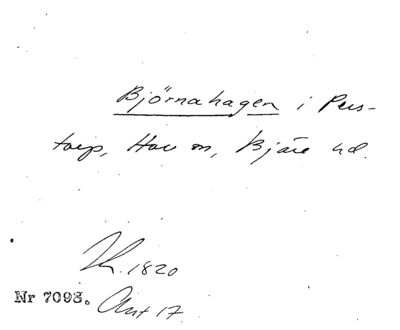 Björnahagen i Pers-
torp, Hov sn, Bjäre hd.
K. 1820
Nr 7093. Avt 17